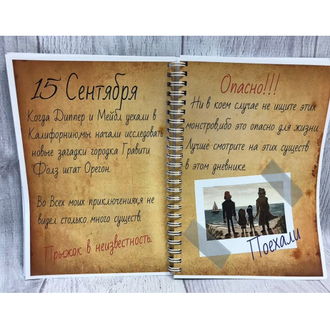 15 Сентября
Когда Диппер и Мейбл уехали в
Калифорнию,мы начали исследовать
новые загадки городка Гравити
Фолз штат Орегон.
Во Всех моих приключениях,я не
видел столько много существ.
Прыжок в неизвестность.
Опасно!!!
Ни в коем случае не ищите этих
монстров,ибо это опасно для жизни
Лучше смотрите на этих существ
в этом дневнике.
Поехали